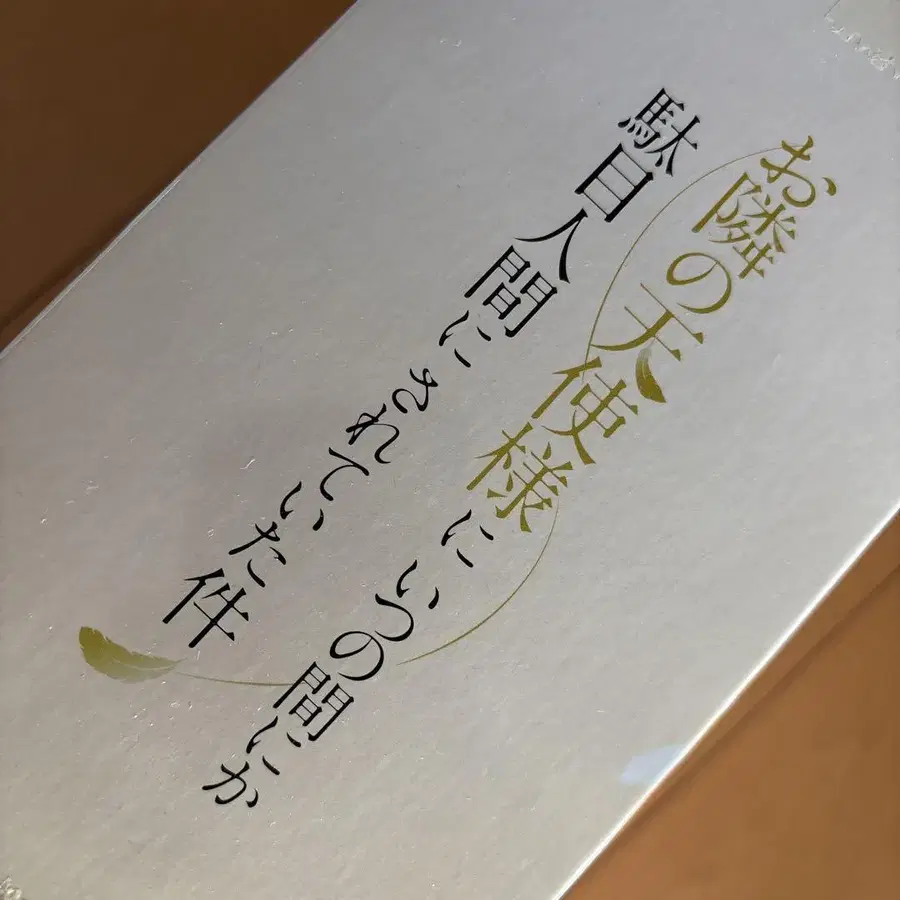 お隣の天使様にいつの間にか
駄目人間にされていた件